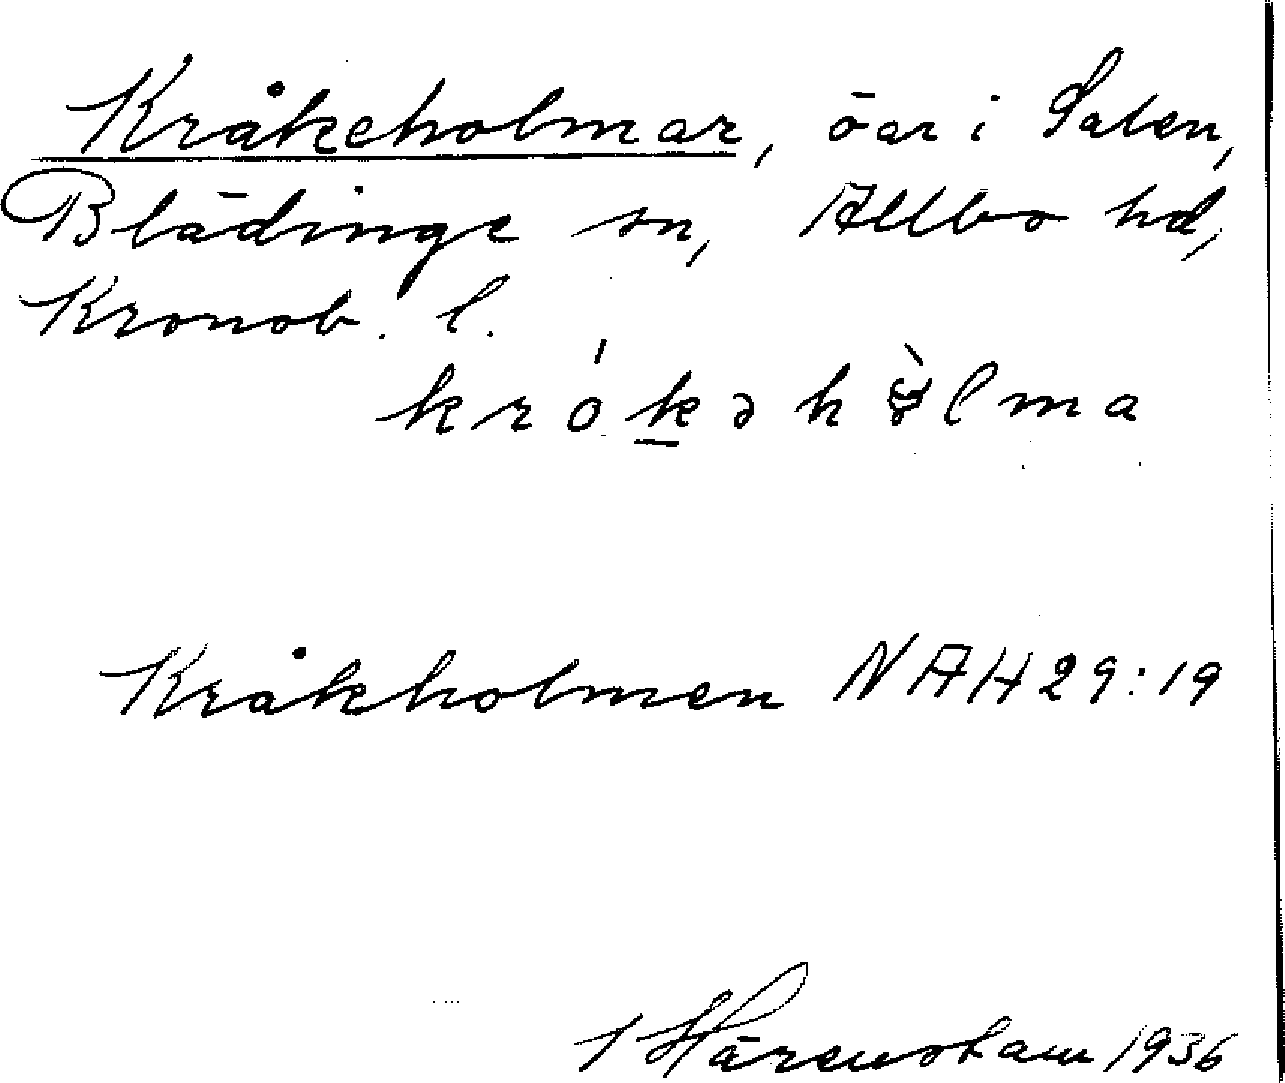 Kråkeholmar, öar i Salen,
Blädinge sn, Allbo hd,
Kronob. l.
Kråkholmen NAH29:19
1936